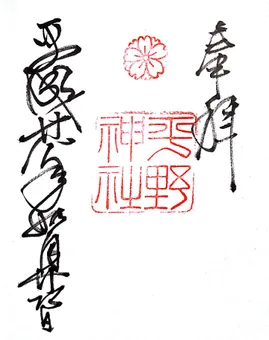 奉拝
平野
神社
平成廿八年如月
日